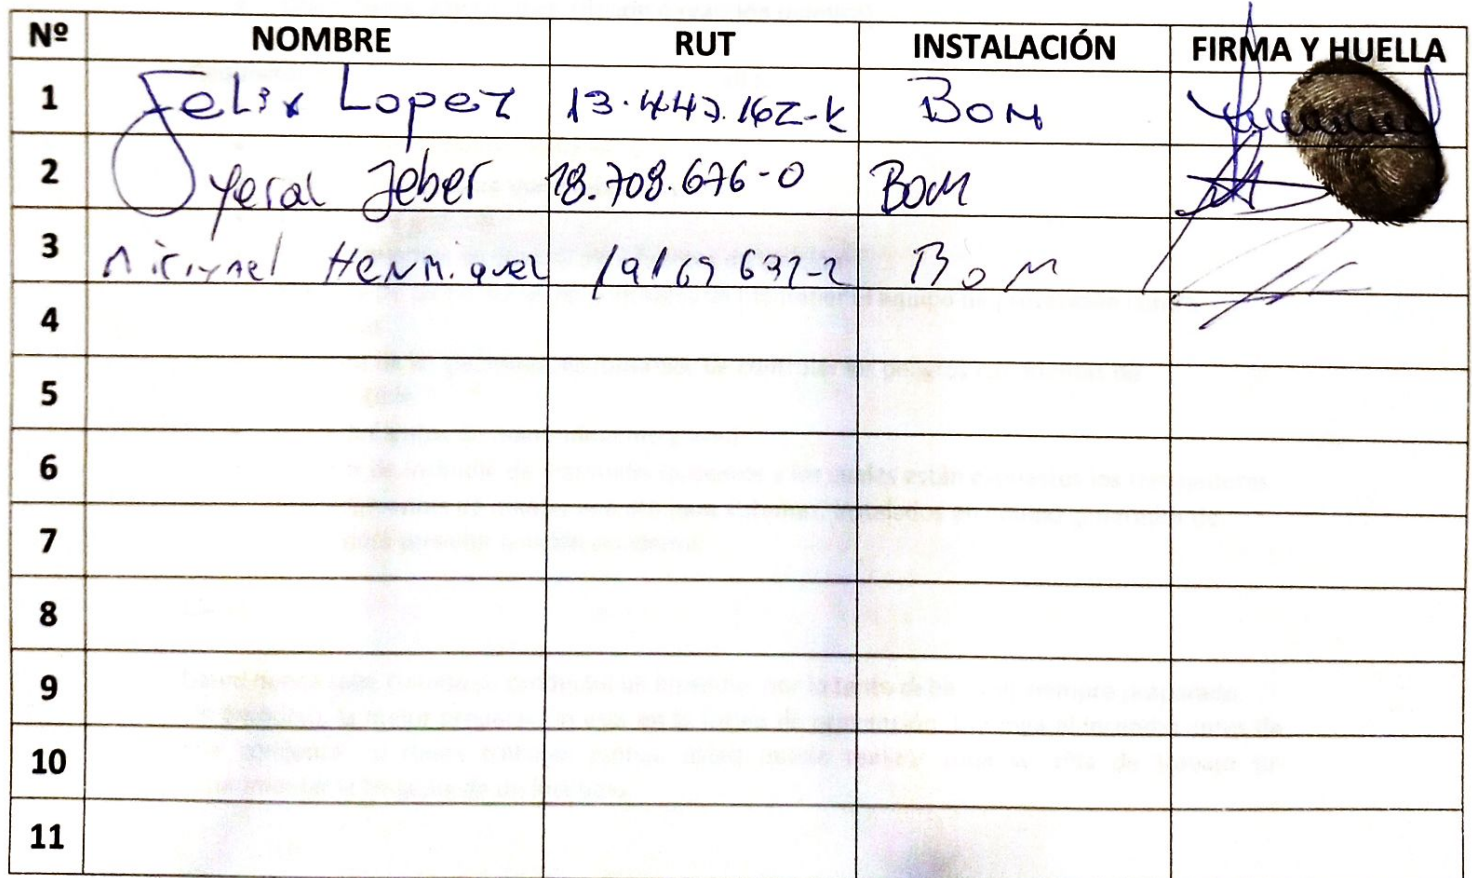 Nº NOMBRE RUT INSTALACIÓN FIRMA Y HUELLA
1 Felix Lopez 13.447.162-k BOM
2 Yeral Jeber 18.708.676-0 BOM
3 Henriquez BOM
4
5
6
7
8
9
10
11